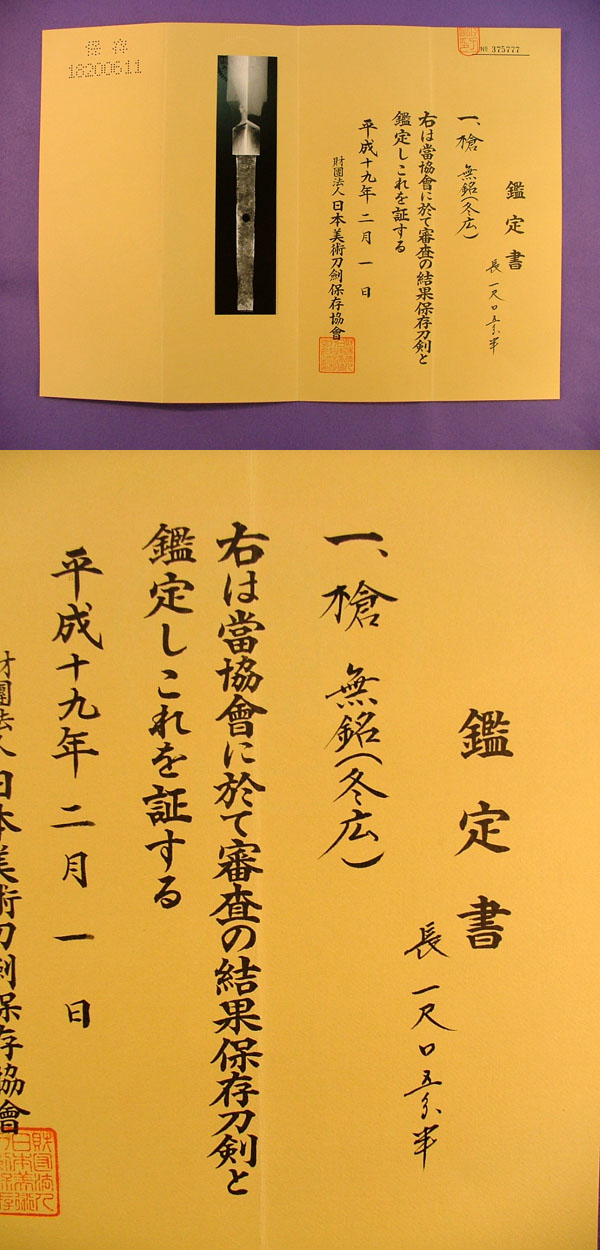 № 375777
鑑定書
長 一尺〇五分半
一、槍 無銘(冬広)
右は當協會に於て審査の結果保存刀剣と
鑑定しこれを証する
平成十九年 二月 一日
財團法人日本美術刀剣保存協會
保存
18200611
鑑定書
長 一尺〇五分半
一、槍 無銘(冬広)
右は當協會に於て審査の結果保存刀剣と
鑑定しこれを証する
平成十九年 二月 一日
財團法人日本美術刀剣保存協會